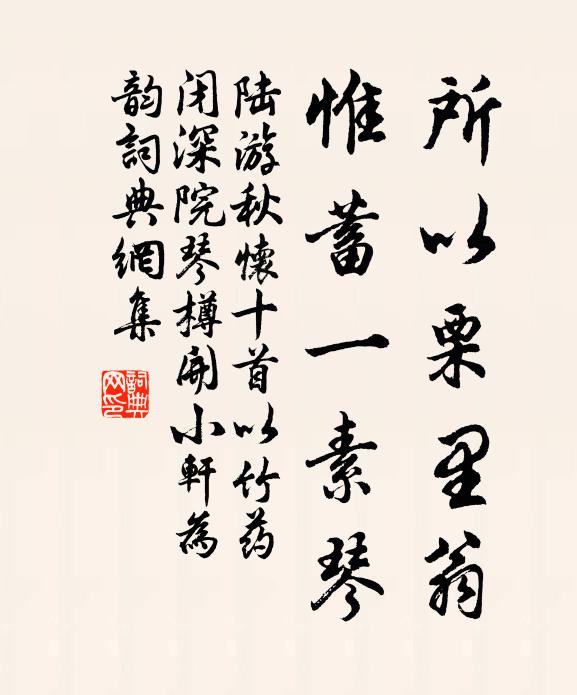 所以栗里翁
惟蓄一素琴
陆游秋懷十首以竹药
闭深院琴樽開小軒為
韵詞典網集
詞典
网印